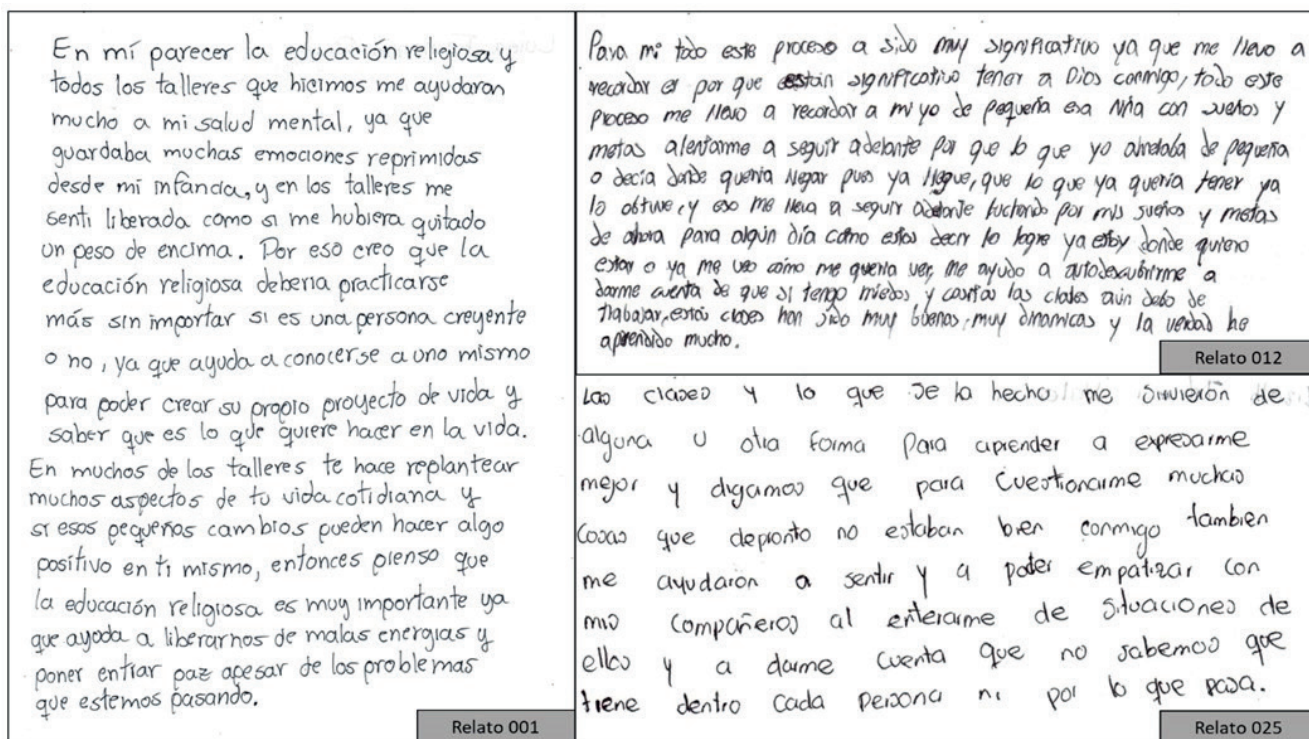 En mí parecer la educación religiosa y
todos los talleres que hicimos me ayudaron
mucho a mi salud mental, ya que
guardaba muchas emociones reprimidas
desde mi infancia, y en los talleres me
senti liberada como si me hubiera quitado
un peso de encima. Por eso creo que la
educación religiosa deberia practicarse
más sin importar si es una persona creyente
o no, ya que ayuda a conocerse a uno mismo
para poder crear su propio proyecto de vida y
saber que es lo que quiere hacer en la vida.
En muchos de los talleres te hace replantear
muchos aspectos de tu vida cotidiana y
si esos pequeños cambios pueden hacer algo
positivo en ti mismo, entonces pienso que
la educación religiosa es muy importante ya
que ayuda a liberarnos de malas energias y
poner entrar paz apesar de los problemas
que estemos pasando.
Relato 001
Para mi todo este proceso a sido muy significativo ya que me llevo a
recordar el por que es tan significativo tener a Dios conmigo, todo este
proceso me llevo a recordar a mi yo de pequeña esa niña con sueños y
metas alentarme a seguir adelante por que lo que yo anhelaba de pequeña
o decia donde queria llegar pues ya llegue, que lo que ya queria tener ya
lo obtuve, y eso me lleva a seguir adelante luchando por mis sueños y metas
de ahora para algún día cómo estos decir lo logre ya estoy donde quiero
estar o ya me veo cómo me queria ver, me ayudo a autodescubrirme a
darme cuenta de que si tengo miedos, y cositas las cuales aún debo de
trabajar, estas clases han sido muy buenas, muy dinamicas y la verdad he
aprendido mucho.
Relato 012
Las clases y lo que se ha hecho me sirvierón de
alguna u otra forma para aprender a expresarme
mejor y digamos que para cuestionarme muchas
cosas que depronto no estaban bien conmigo tambien
me ayudaron a sentir y a poder empatizar con
mis compañeros al enterarme de situaciones de
ellos y a darme cuenta que no sabemos que
tiene dentro cada persona ni por lo que pasa.
Relato 025